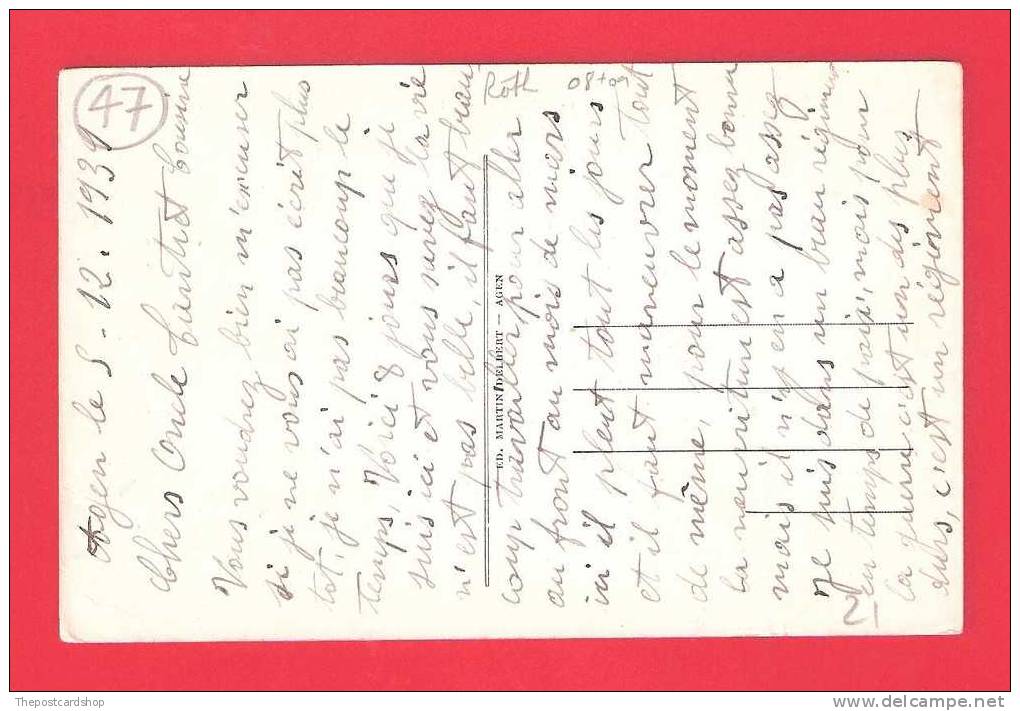 47
Agen le 5-12.1939
Chers Oncle Tante et Cousine
Vous voudrez bien m'excuser
si je ne vous ai pas écrit plus
tot, je n'ai pas beaucoup le
temps, Voici 8 jours que je
suis ici et vous savez la vie
n'est pas belle, il faut beau
ED. MARTIN DELBERT — AGEN
coup travailler pour aller
au front au mois de mars
ici il pleut tout les jours
et il faut manœuvrer tout
de même, pour le moment
la nourriture est assez bonne
mais il n'y en a pas assez
Je suis dans un beau régiment
en temps de paix, mais pour
la guerre c'est un des plus
durs, c'est un régiment
Roth
08+09
2
Thepostcardshop
www.delcampe.net